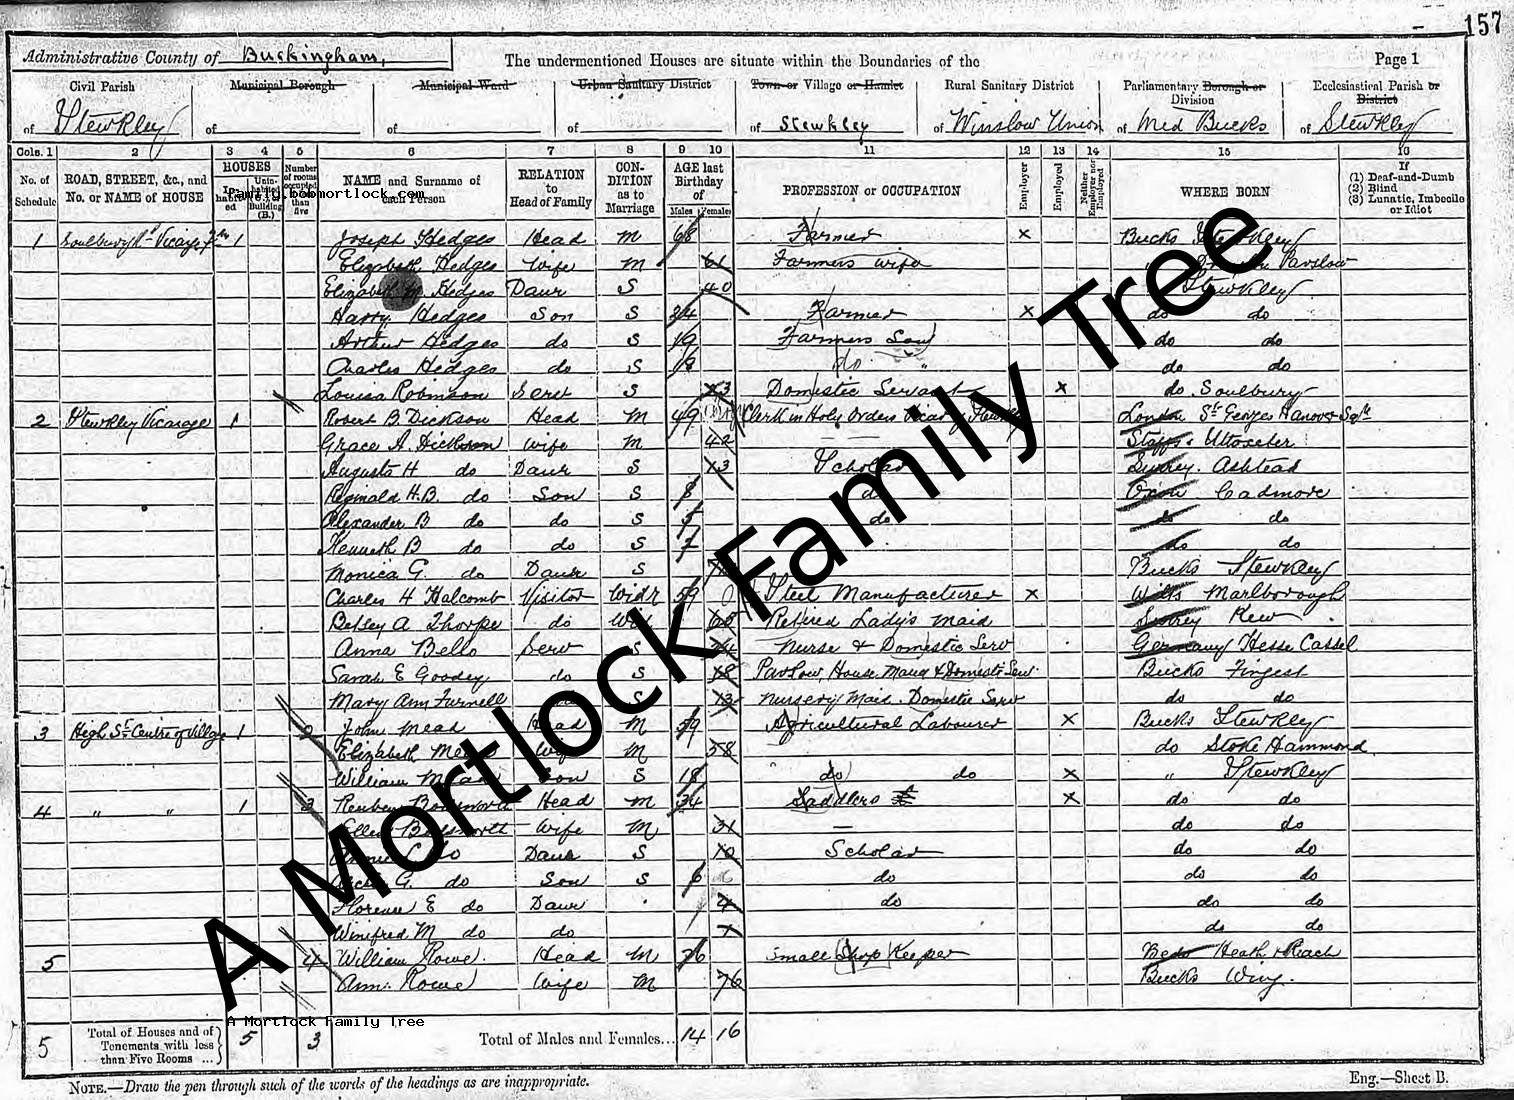 157
Administrative County of Buckingham,
The undermentioned Houses are situate within the Boundaries of the
Page 1
Civil Parish of Stewkley
Municipal Borough of
Municipal Ward of
Urban Sanitary District of
Town or Village or Hamlet of Stewkley
Rural Sanitary District of Winslow Union
Parliamentary Borough or Division of Mid Bucks
Ecclesiastical Parish or District of Stewkley
Cols. 1 2 3 4 5 6 7 8 9 10 11 12 13 14 15 16
No. of Schedule
ROAD, STREET, &c., and No. or NAME of HOUSE
HOUSES
In-habit-ed
Unin-habited Building (B.)
Number of rooms occupied than five
NAME and Surname of each Person
RELATION to Head of Family
CON-DITION as to Marriage
AGE last Birthday of
Males Females
PROFESSION or OCCUPATION
Employer
Employed
Neither Employer nor Employed
WHERE BORN
If
(1) Deaf-and-Dumb
(2) Blind
(3) Lunatic, Imbecile or Idiot
family.bobmortlock.com
1 1 Joseph Hedges Head M 68 Farmer x Bucks Stewkley
Elizabeth Hedges Wife M 61 Farmers wife Parslow
Elizabeth Hedges Daur S 40 Stewkley
Harry Hedges Son S 24 Farmer x do do
Arthur Hedges do S 19 Farmers Son do do
Charles Hedges do S 18 do do do
Louisa Robinson Servt S 13 Domestic Servant x do Soulbury
2 Stewkley Vicarage 1 Robert B. Dickson Head M 49 Clerk in Holy Orders Vicar of London St Georges Hanover Sqre
Grace A. Dickson Wife M 42 Staffs. Uttoxeter
Augusta H do Daur S 13 Scholar Surrey. Ashtead
Reginald H.B. do Son S 8 do Oxon Cadmore
Alexander B do do S 5 do do do
Kenneth B do do S 2 do do
Monica G. do Daur S Bucks Stewkley
Charles H Halcomb Visitor Widr 59 Steel Manufacturer x Wilts Marlborough
Betsey A. Thorpe do 60 Retired Lady's Maid Surrey Kew
Anna Bello Serv S 24 Nurse & Domestic Serv Germany Hesse Cassel
Sarah E Goodey do S 18 Parlour House Maid & Domestic Serv Bucks Fingest
Mary Ann Furnell S 13 Nursery Maid. Domestic Serv do do
3 High St Centre of Village 1 2 John Mead Head M 59 Agricultural Labourer x Bucks Stewkley
Elizabeth Mead Wife M 58 do Stoke Hammond
William Mead Son S 18 do do x " Stewkley
4 " " 1 3 Reuben Head M 34 Saddlers x do do
Ellen Wife M 31 — do do
do Daur S 10 Scholar do do
G. do Son S 6 do do do
Florence E do Daur 4 do do do
Winifred M do do do do
5 4 William Rowe Head M 76 Small Shop Keeper Beds Heath & Reach
Ann Rowe Wife M 76 Bucks Wing.
A Mortlock Family Tree
A Mortlock Family Tree
5 Total of Houses and of Tenements with less than Five Rooms ... 5 3 Total of Males and Females... 14 16
NOTE.—Draw the pen through such of the words of the headings as are inappropriate.
Eng.—Sheet B.